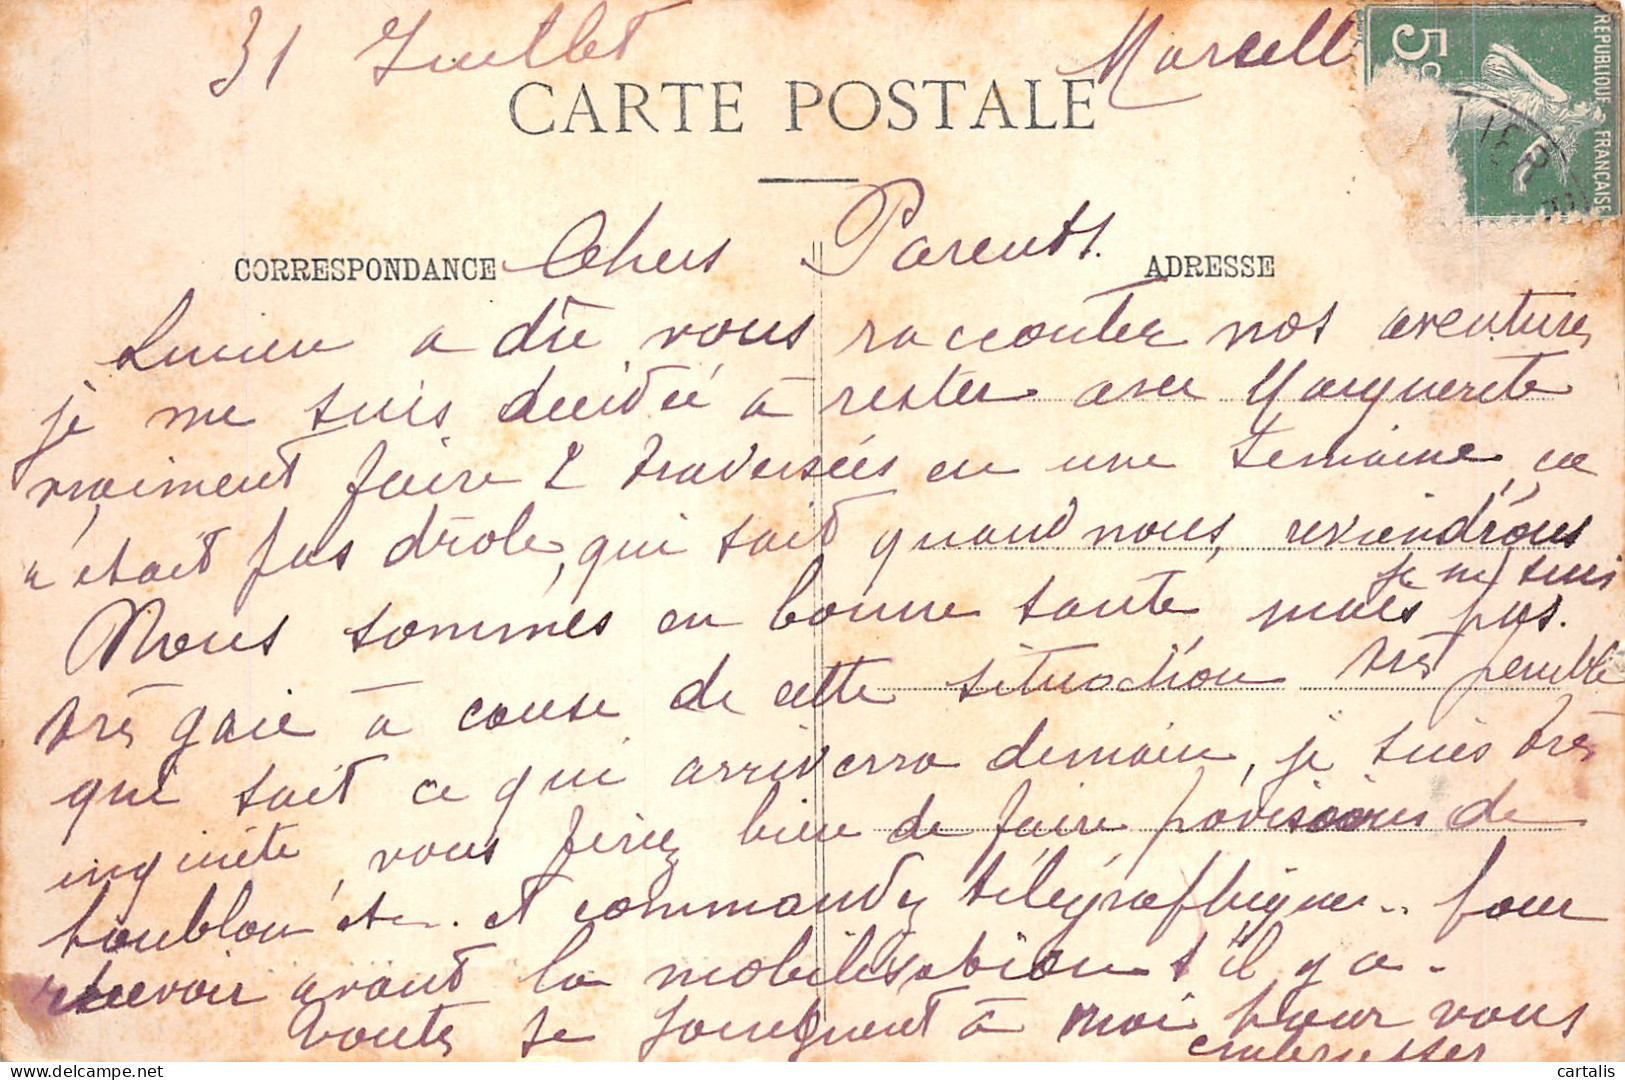 31 Juillet Marseill
5c
REPUBLIQUE FRANCAISE
CARTE POSTALE
CORRESPONDANCE
ADRESSE
Chers Parents.
Lucien a dû vous raconter nos aventures
je me suis décidée à rester avec Marguerite
vraiment faire 2 traversées en une semaine ce
n'était pas drôle, qui sait quand nous reviendrons
Nous sommes en bonne santé mais je ne suis pas
très gaie à cause de cette situation très penible
qui sait ce qui arrivera demain, je suis très
inquiète, vous feriez bien de faire provisions de
houblon etc. et commandez télégraphiquer.. pour
recevoir avant la mobilisation s'il y a.
toutes se joignent à moi pour vous
embrasser
cartalis